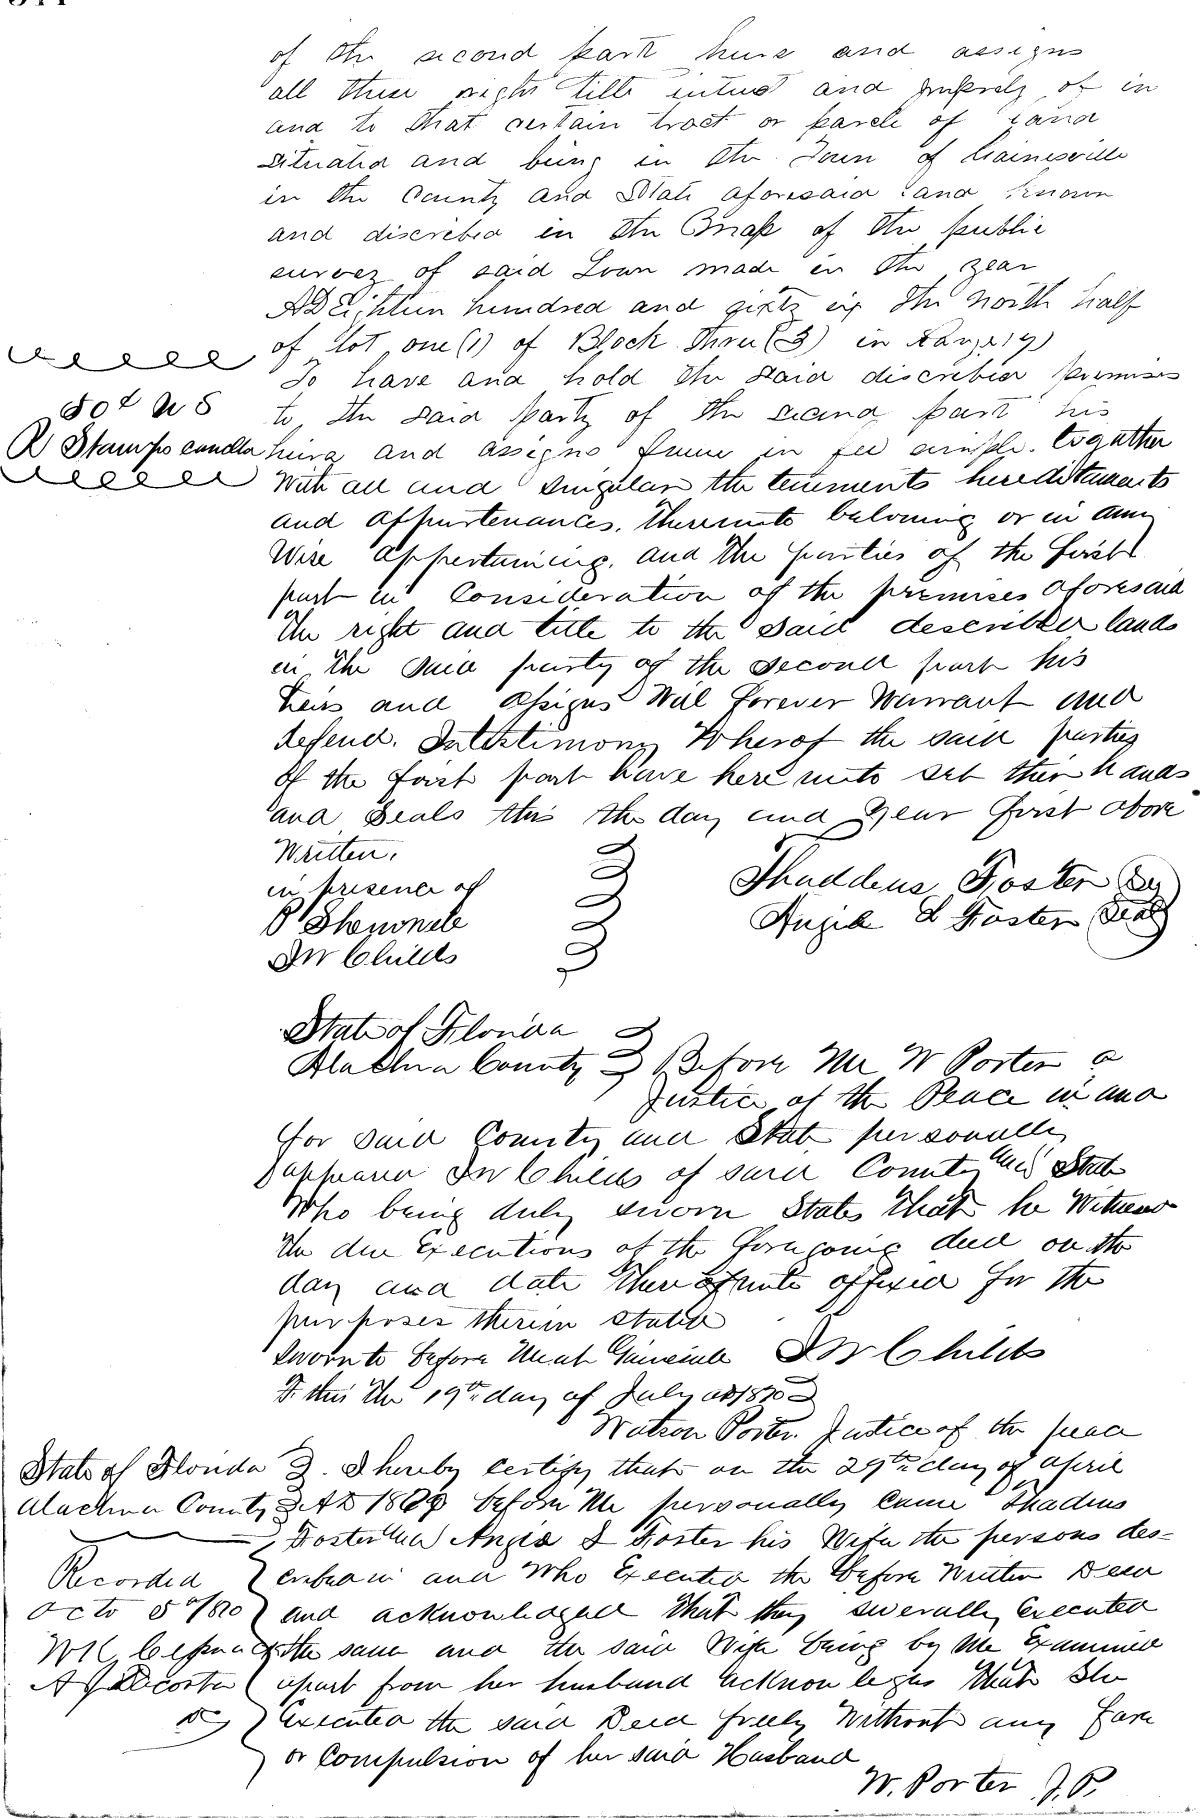 of the second part heirs and assigns
all their right title interest and property of in
and to that certain tract or parcle of land
situated and being in the Town of Gainesville
in the County and State aforesaid and known
and discribed in the Map of the public
survey of said Town made in the year
AD Eighteen hundred and sixty six The North half
of lot one (1) of Block Three (3) in Range 19)
To have and hold the said discribed premises
to the said party of the second part his
50¢ U S
R Stamps
heirs and assigns in fee simple. togather
With all and Singular the tenements hereditaments
and appurtenances. Thereunto beloning or in any
Wise appertaining. and the parties of the first
part in Consideration of the premises aforesaid
The right and title to the said described lands
in the said party of the second part his
heirs and assigns Will forever Warrant and
defend. In testimony Wherof the said parties
of the first part have here unto set their hands
and Seals this the day and year first above
Written.
in presence of
Thaddeus Foster
P
Angie L Foster Seal
J W Childs
State of Florida
Alachua County Before Me W Porter a
Justice of the Peace in and
for said County and State personally
appeared J W Childs of said County and State
Who being duly sworn States that he Witness
the due Executions of the foregoing deed on the
day and date affixed for the
purposes therein stated
Sworn to before Me at Gainesville J W Childs
F this the 19th day of July AD 1870
Watson Porter Justice of the peace
State of Florida I hereby certify that on the 29th day of April
Alachua County AD 1869 before Me personally came Thadeus
Foster and Angie L Foster his Wife the persons des-
cribed in and Who Executed the before Written Deed
Recorded
Octo 5th/870
and acknowledged that they severally Executed
the same and the said Wife being by Me Examined
apart from her husband acknowleges that She
Executed the said Deed freely Without any fare
or Compulsion of her said Husband
W. Porter J.P.